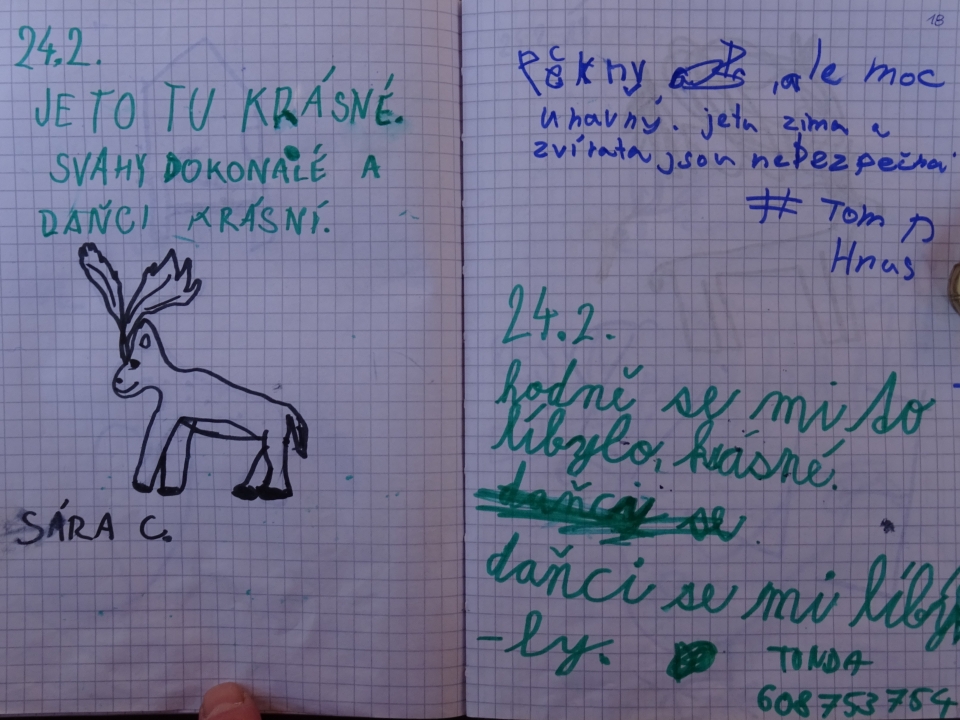 24.2.
JE TO TU KRÁSNÉ.
SVAHY DOKONALÉ A
DAŇCI KRÁSNÍ.
SÁRA C.
18
Pěkny , ale moc
unavný. jetu zima a
zvířata jsou nebezpečna
# Tom
Hnus
24.2.
hodně se mi to
líbylo, krásné.
daňci se
daňci se mi líby
-ly.
TONDA
608753754